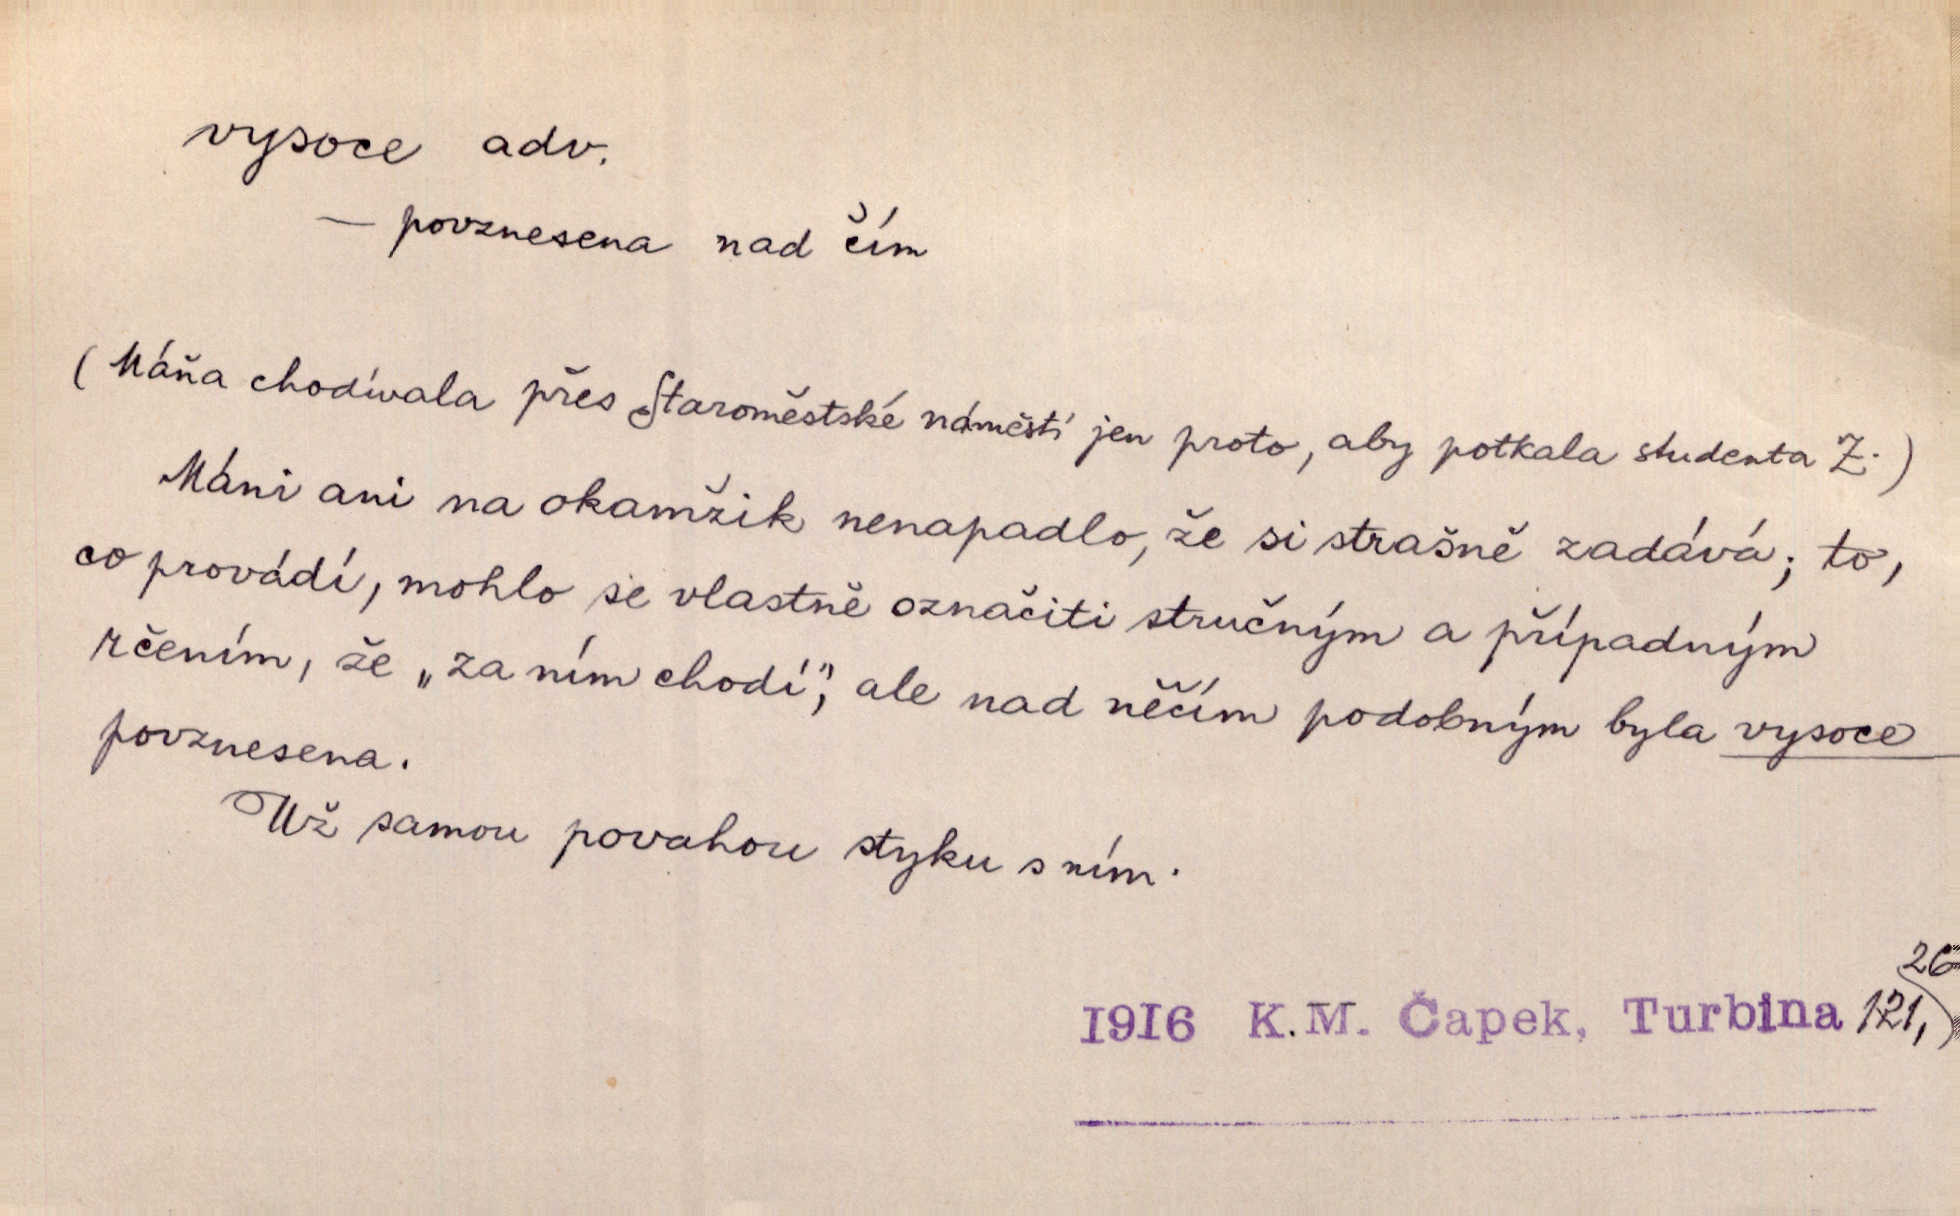 vysoce adv.
— povznesena nad čím
(Máňa chodívala přes Staroměstské náměstí jen proto, aby potkala studenta Z.)
Máni ani na okamžik nenapadlo, že si strašně zadává; to,
co provádí, mohlo se vlastně označiti stručným a případným
rčením, že „za ním chodí“, ale nad něčím podobným byla vysoce
povznesena.
Už samou povahou styku s ním.
26
1916 K.M. Čapek, Turbina 121,